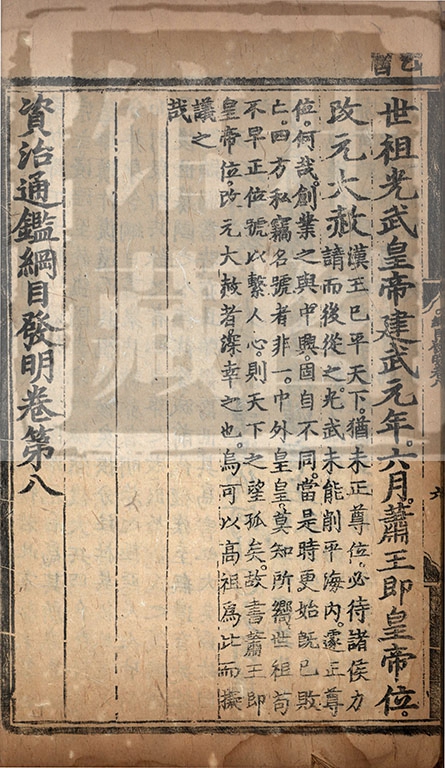 乙酉
世祖光武皇帝建武元年。六月。蕭王即皇帝位。
改元大赦
漢王已平天下。猶未正尊位。必待諸侯力
請而後從之。光武未能削平海內。遽正尊
位。何哉。創業之與中興。固自不同。當是時更始既已敗
亡。四方私竊名號者非一。中外皇皇。莫知所嚮。世祖苟
不早正位號以繫人心。則天下之望孤矣。故書蕭王即
皇帝位。改元大赦者。深幸之也。烏可以高祖爲比而擬
議之
哉
資治通鑑綱目發明卷第八